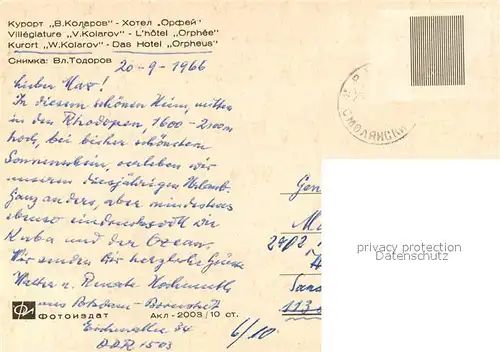 Курорт „В.Коларов" - Хотел „Орфей"
Villégiature „V.Kolarov" - L'hôtel „Orphée"
Kurort „W.Kolarov" - Das Hotel „Orpheus"
Снимка: Вл.Тодоров
20-9-1966
Lieber Max!
In diesem schönen Heim, mitten
in den Rhodopen, 1600-2100m
hoch, bei bisher schönstem
Sonnenschein, verleben wir
unseren diesjährigen Urlaub.
Ganz anders, aber mindestens
ebenso eindrucksvoll wie
Kuba und der Ozean.
Wir senden Dir herzliche Grüsse
Walter u. Renate
aus Potsdam-Bornstedt
84
DDR 1503
Фотоиздат Акл-2003/10 ст.
6/10
Gen
2402
113
СМОЛЯНСКИ
privacy protection
Datenschutz